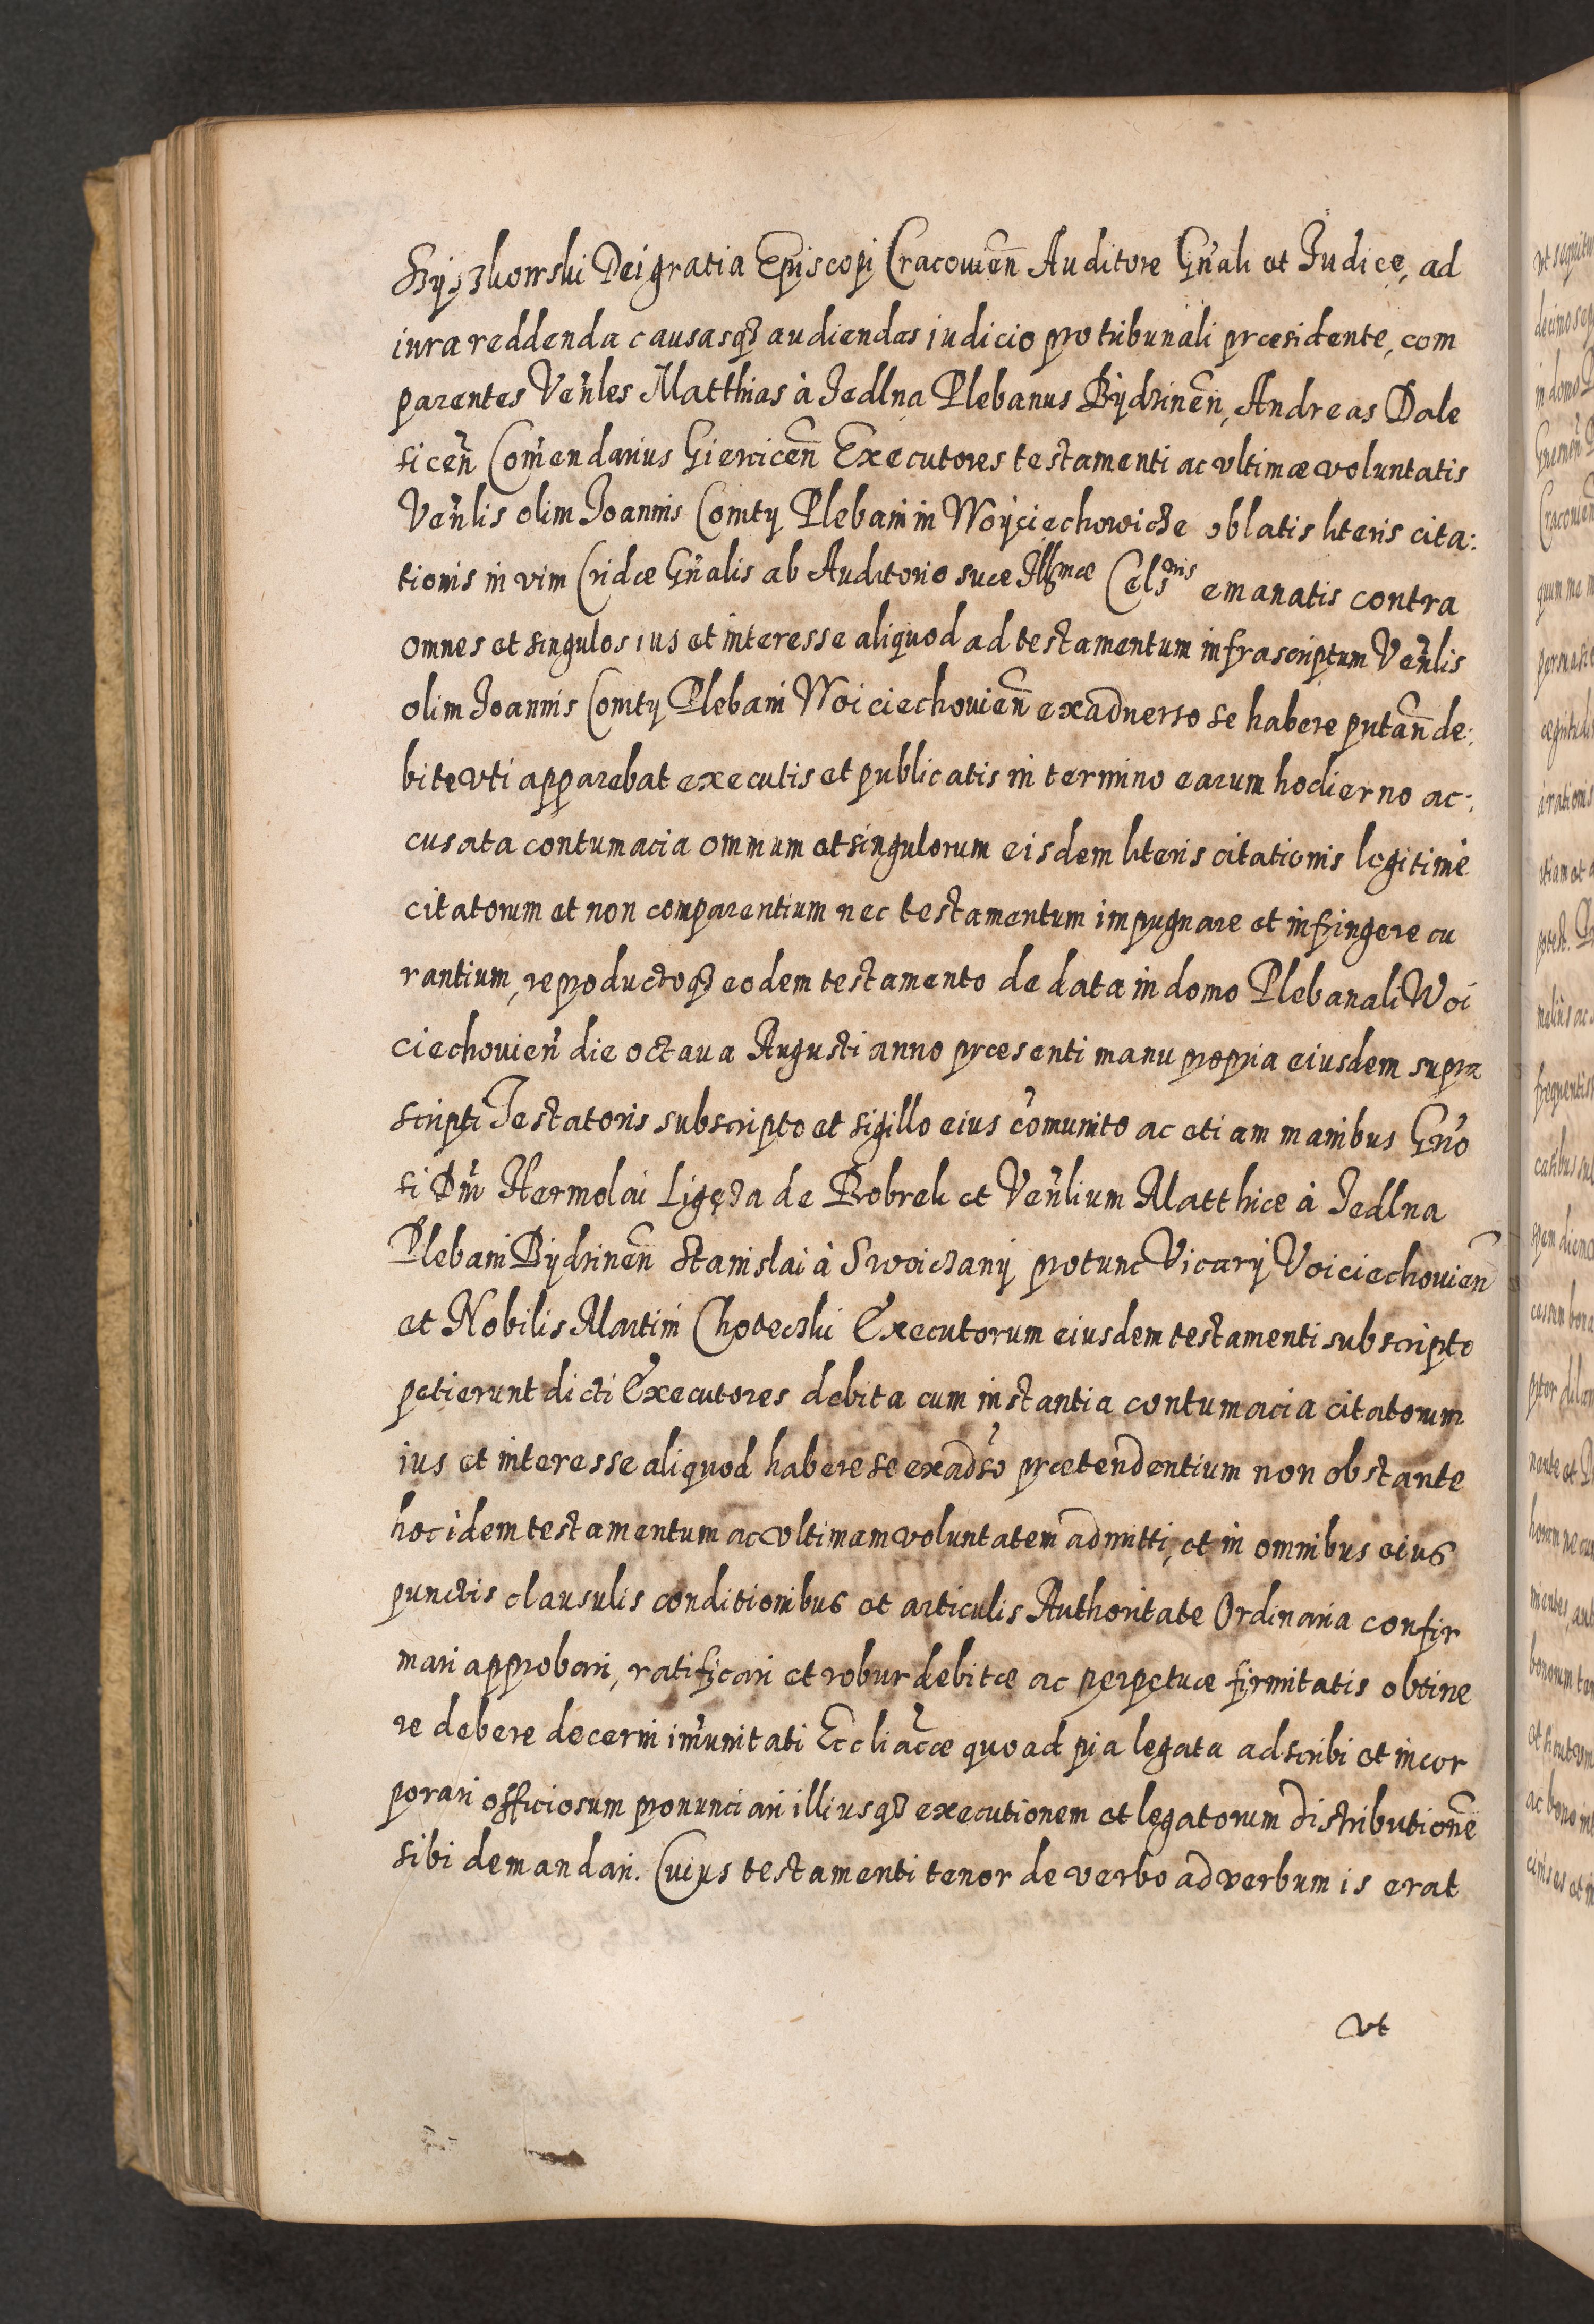 Szyszkowski Dei gratia Episcopi Cracovien̄ Auditore Gn̄ali et Iudice, ad
iura reddenda causasqꝫ audiendas iudicio pro tribunali præsidente, com
parentes Ven̄les Matthias à Jedlna Plebanus Bÿdzinen̄, Andreas Dale
sicen̄ Com̄endarius Giericen̄ Executores testamenti ac vltimæ voluntatis
Ven̄lis olim Joannis Comty Plebani in Woÿciechowicze oblatis literis cita:
tionis in vim Cridæ Gn̄alis ab Auditorio suæ Illmæ Celsnis emanatis contra
omnes et singulos ius et interesse aliquod ad testamentum infrascriptum Ven̄lis
olim Joannis Comty Plebani Woiciechovien̄ ex aduerso se habere putan̄ de:
bite vti apparebat executis et publicatis in termino earum hodierno ac:
cusata contumacia omnium et singulorum eisdem literis citationis legitimè
citatorum et non comparentium nec testamentum impugnare et infringere cu
rantium, reproductoqꝫ eodem testamento de data in domo Plebanali Woi
ciechovien̄ die octaua Augusti anno præsenti manu propria eiusdem supra
scripti Testatoris subscripto et sigillo eius com̄unito ac etiam manibus Gn̄o
si Dn̄i Hermolai Ligęza de Bobrek et Ven̄lium Matthiæ à Jedlna
Plebani Bÿdzinen̄ Stanislai à Swoiczanÿ protunc Vicarÿ Voiciechovien̄
et Nobilis Martini Choteczki Executorum eiusdem testamenti subscripto
petierunt dicti Executores debita cum instantia contumacia citatorum
ius et interesse aliquod habere se ex adūso prætendentium non obstante
hoc idem testamentum ac vltimam voluntatem admitti, et in omnibus eius
punctis clausulis conditionibus et articulis Authoritate Ordinaria confir
mari approbari, ratificari et robur debitæ ac perpetuæ firmitatis obtine
re debere decerni im̄unitati Eccliācæ quoad pia legata adscribi et incor
porari officiosum pronunciari illiusqꝫ executionem et legatorum distributionē
sibi demandari. Cuius testamenti tenor de verbo ad verbum is erat
vt